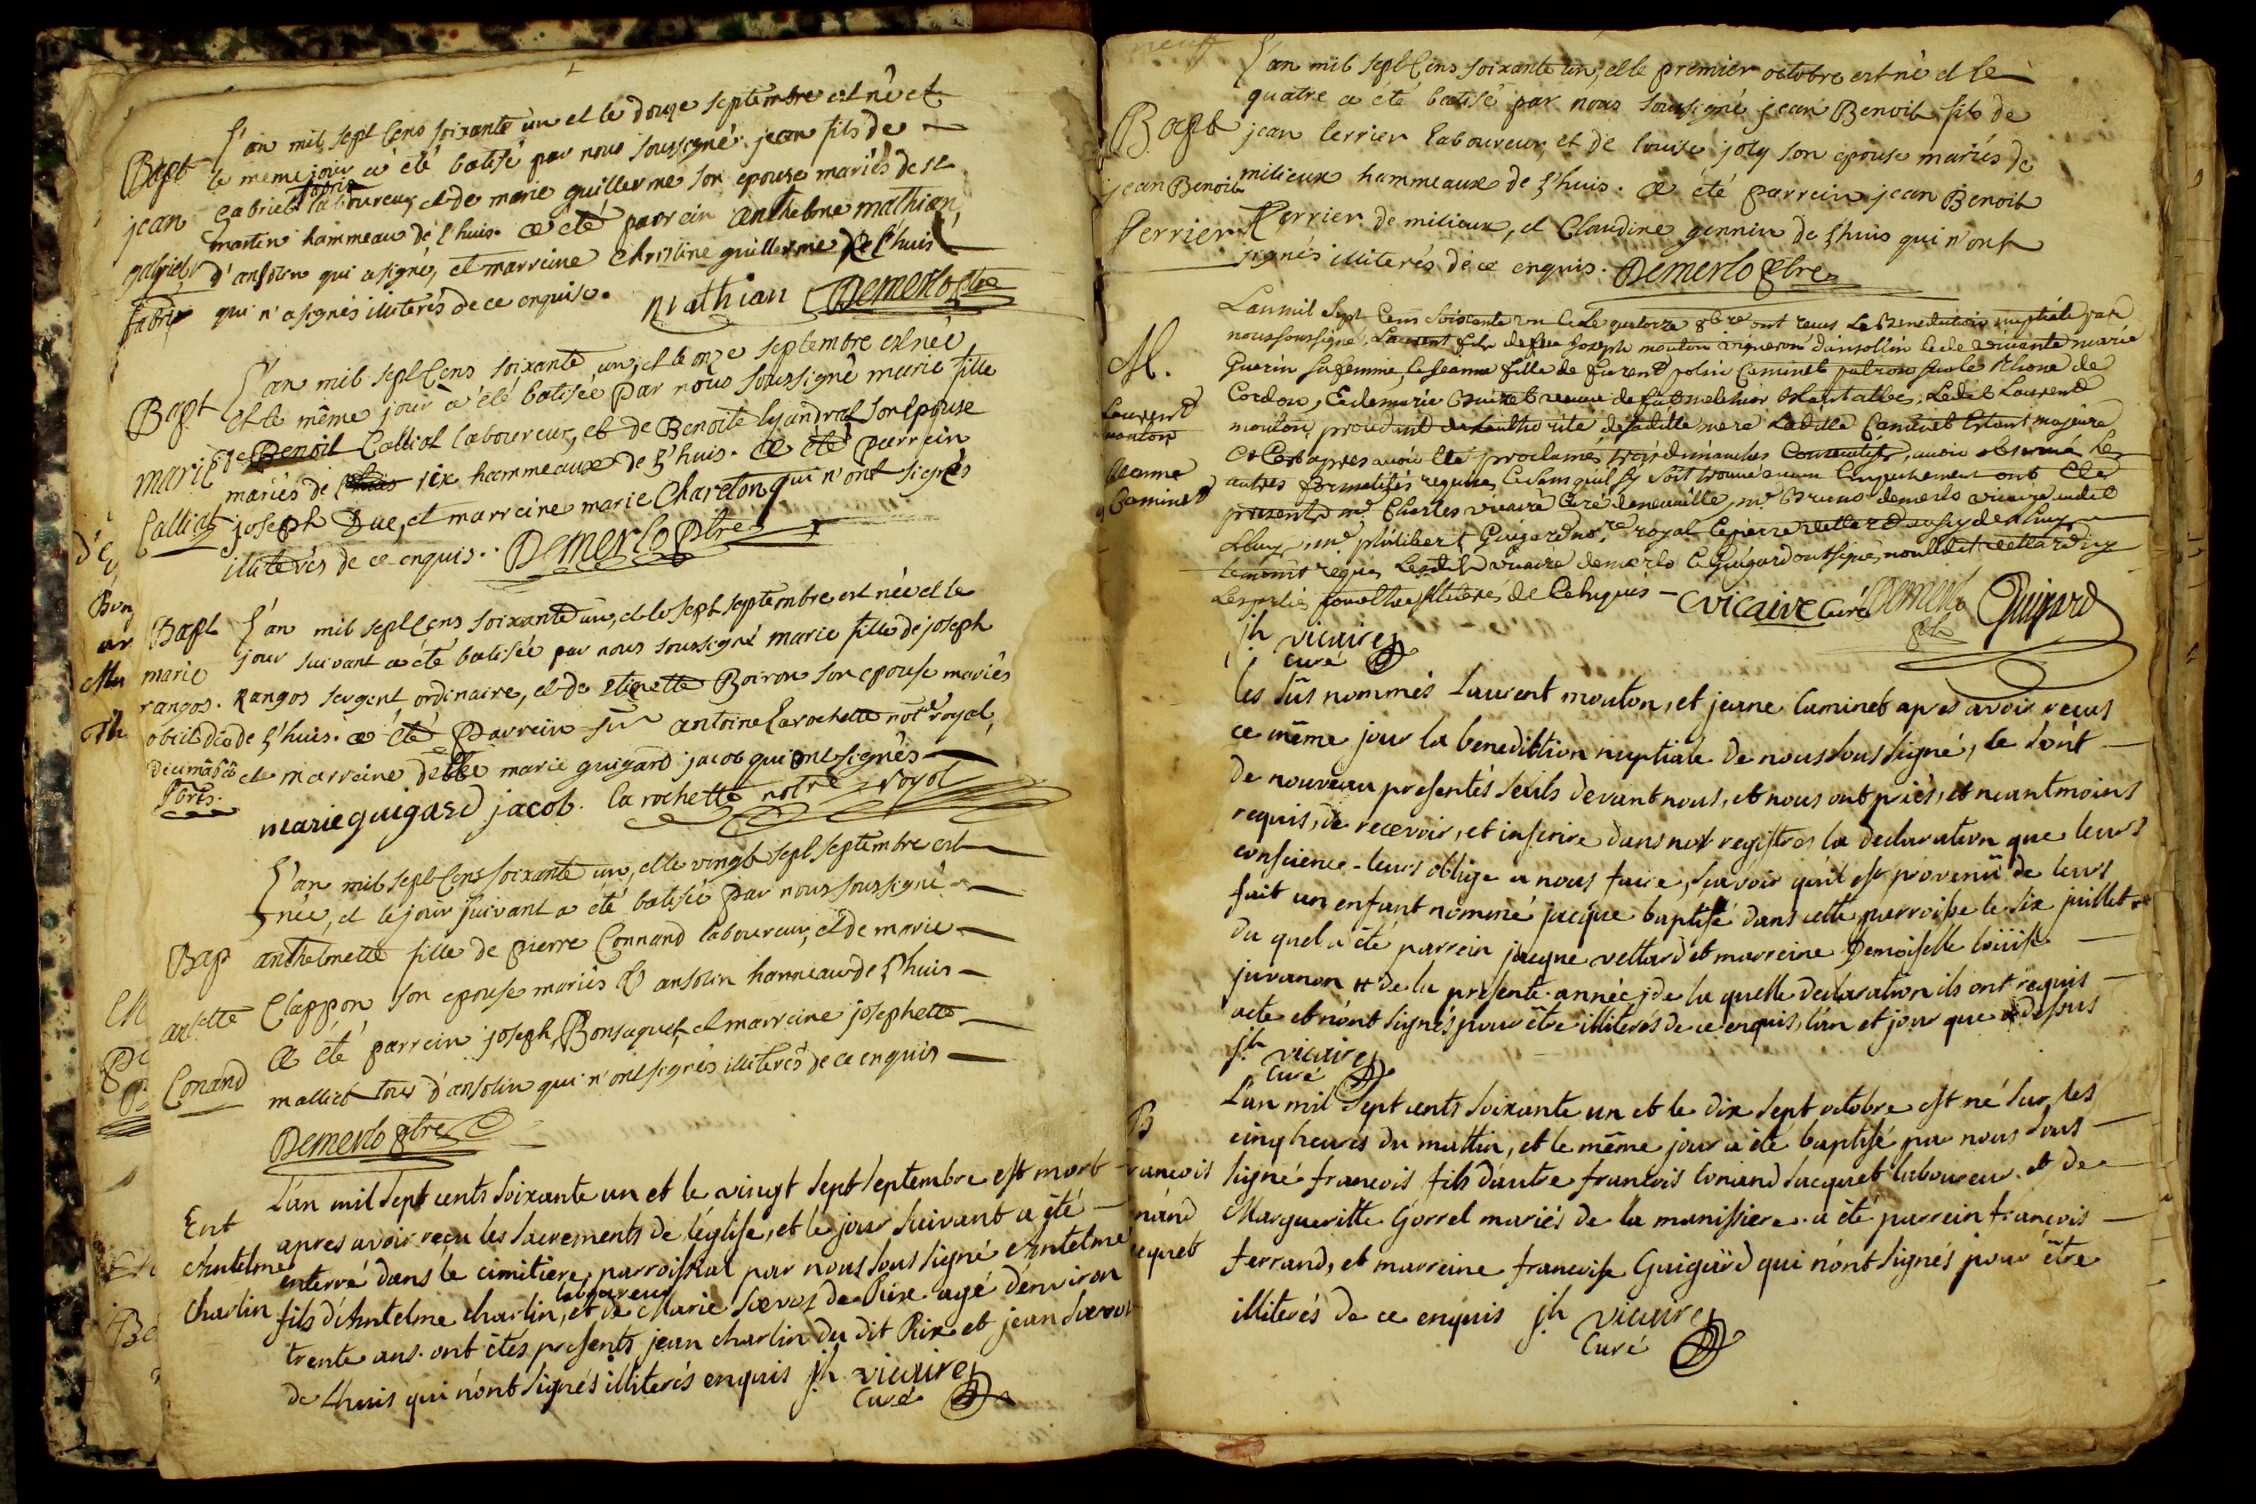 L'an mil sept Cens soixante un et le douze septembre est né et
Bapt le meme jour a été batisé par nous soussigné jean fils de
jean gabriel fabrie laboureur, et de marie guillerme son epouse mariés de st
martin hammeau de l'huis. a été parrein anthelme mathian
gabriel d'ansolin qui a signé, et marreine Christine guillerme de l'huis
fabrie qui n'a signés illiterés de ce enquise. mathian Demerlo ptre
L'an mil sept Cens soixante un, et le onze septembre est née
Bapt et le même jour a été batisée par nous soussigné marie fille
marie de Benoit Calliat laboureur, et de Benoite lyandrat son epouse
mariés de rix hammeaux de l'huis. a été parrein
Calliat joseph Due, et marreine marie Chareton qui n'ont signés
illiterés de ce enquis. Demerlo ptre
Bapt L'an mil sept Cens soixante un, et le sept septembre est née et le
marie jour suivant a été batisée par nous soussigné marie fille de joseph
rangos. Rangos sergent ordinaire, et de etienette Boiron son epouse mariés
obiit die de l'huis. a été parrein sr antoine Larochette notre royal,
et marreine delle marie guigard jacob qui ont signés
marie guigard jacob. la rochette notre royal
L'an mil sept Cens soixante un, et le vingt sept septembre est
née, et le jour suivant a été batisée par nous soussigné
Bap anthelmette fille de pierre Connand laboureur, et de marie
antette Clappon son epouse mariés d'ansolin hammeau de l'huis
a été parrein joseph Bonsaquet, et marreine josephette
Conand malliet tous d'ansolin qui n'ont signés illiterés de ce enquis
Demerlo ptre
L'an mil sept cents soixante un et le vingt sept septembre est mort
Ent apres avoir reçu les sacrements de l'église, et le jour suivant a été
Antelme enterré dans le cimitiere parroissial par nous sous signé Antelme
Charlin fils d'Antelme charlin, laboureur et de Marie de Rix agé d'environ
trente ans. ont étés presents jean charlin du dit Rix et jean
de Lhuis qui n'ont signés illiterés enquis jh vicaire
Curé
L'an mil sept Cens soixante un, et le premier octobre est né et le
quatre a été batisé par nous soussigné jean Benoit fils de
Bapt jean Perrier laboureur, et de louise joly son epouse mariés de
jean Benoit milieux hammeaux de l'huis. a été parrein jean Benoit
Perrier Perrier de milieux, et Claudine gennin de l'huis qui n'ont
signés illiterés de ce enquis. Demerlo ptre
L'an mil sept Cens soixante un et le quatorze 8bre ont reçus la Benediction nuptiale par
M. nous soussigné, Laurent fils de feu Joseph mouton vigneron d'ansollin et de vivante marie
Guerin sa femme, et Jeanne fille de Caminet patron sur le Rhone de
Cordon, et de marie veuve de fut melchior. Ledit Laurend
Laurend mouton mouton, procedant de l'authorité de sadite mere Ladite Caminet Estant majeure
et Ce apres avoir Eté proclamés trois dimanches Consecutifs, avoir observé les
Jeanne autres formalités requises, et sans qu'il sy soit trouvé aucun Empechement ont Eté
Caminet presents mr Charles vicaire Curé de mr Bruno demerlo vicaire audit
Lhuys mr philibert Guigard nore royal et pierre vettard de Lhuys
temoins requis Lesdits vicaire demerlo et Guigard ont signé, non ledit vettard ny
Les parties pour Etre illiterés de Ce Enquis - C vicaire Curé Demerlo ptre Guigard
jh vicaire
curé
Les sus nommés Laurent mouton, et jeane Caminet apres avoir reçus
ce même jour la benediction nuptiale de nous sous signé, se sont
de nouveau presentés seuls devant nous, et nous ont priés, et neantmoins
requis, de recevoir, et inscrire dans nos registres la declaration que leurs
conscience leurs oblige a nous faire, sçavoir qu'il est provenu de leurs
fait un enfant nommé jacque baptisé dans cette parroisse le six juillet
du quel a été parrein jacque vettard et marreine Demoiselle loüise
juvanon de la presente année; de la quelle declaration ils ont requis
acte et n'ont signés pour être illiterés de ce enquis, l'an et jour que dessus
jh vicaire
Curé
L'an mil sept cents soixante un et le dix sept octobre est né sur les
B cinq heures du mattin, et le même jour a été baptisé par nous sous
francois signé francois fils d'autre francois Conand sacquet laboureur. et de
nand Margueritte Gorrel mariés de la manissiere. a été parrein francois
cquet ferrand, et marreine francoise Guigard qui n'ont signés pour être
illiterés de ce enquis jh vicaire
Curé